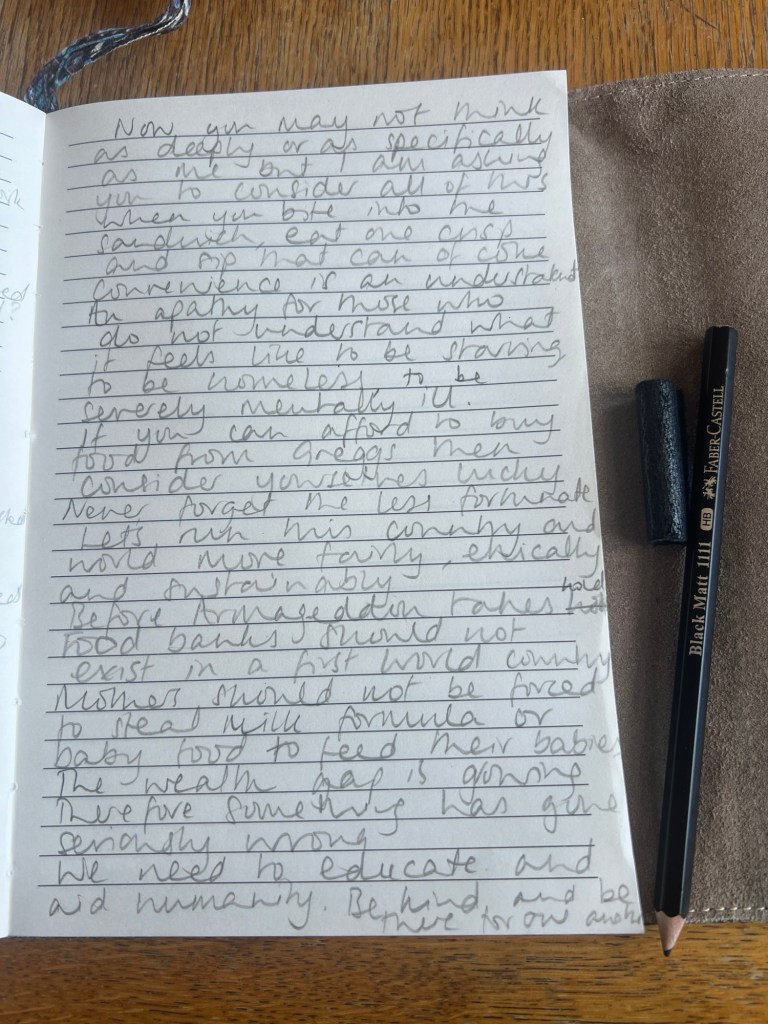 Now you may not think
as deeply or as specifically
as me but I am asking
you to consider all of this
when you bite into the
sandwich, eat one crisp
and sip that can of coke
convenience is an understatement
An apathy for those who
do not understand what
it feels like to be starving
to be homeless, to be
severely mentally ill.
If you can afford to buy
food from Greggs then
consider yourselves lucky
Never forget the less fortunate
Lets run this country and
world more fairly, ethically
and sustainably
Before Armageddon takes hold
Food banks should not
exist in a first world country
Mothers should not be forced
to steal milk formula or
baby food to feed their babies
The wealth gap is growing
Therefore something has gone
seriously wrong
We need to educate and
aid humanity. Be kind and be
there for one another
FABER-CASTELL
HB
Black Matt 1111